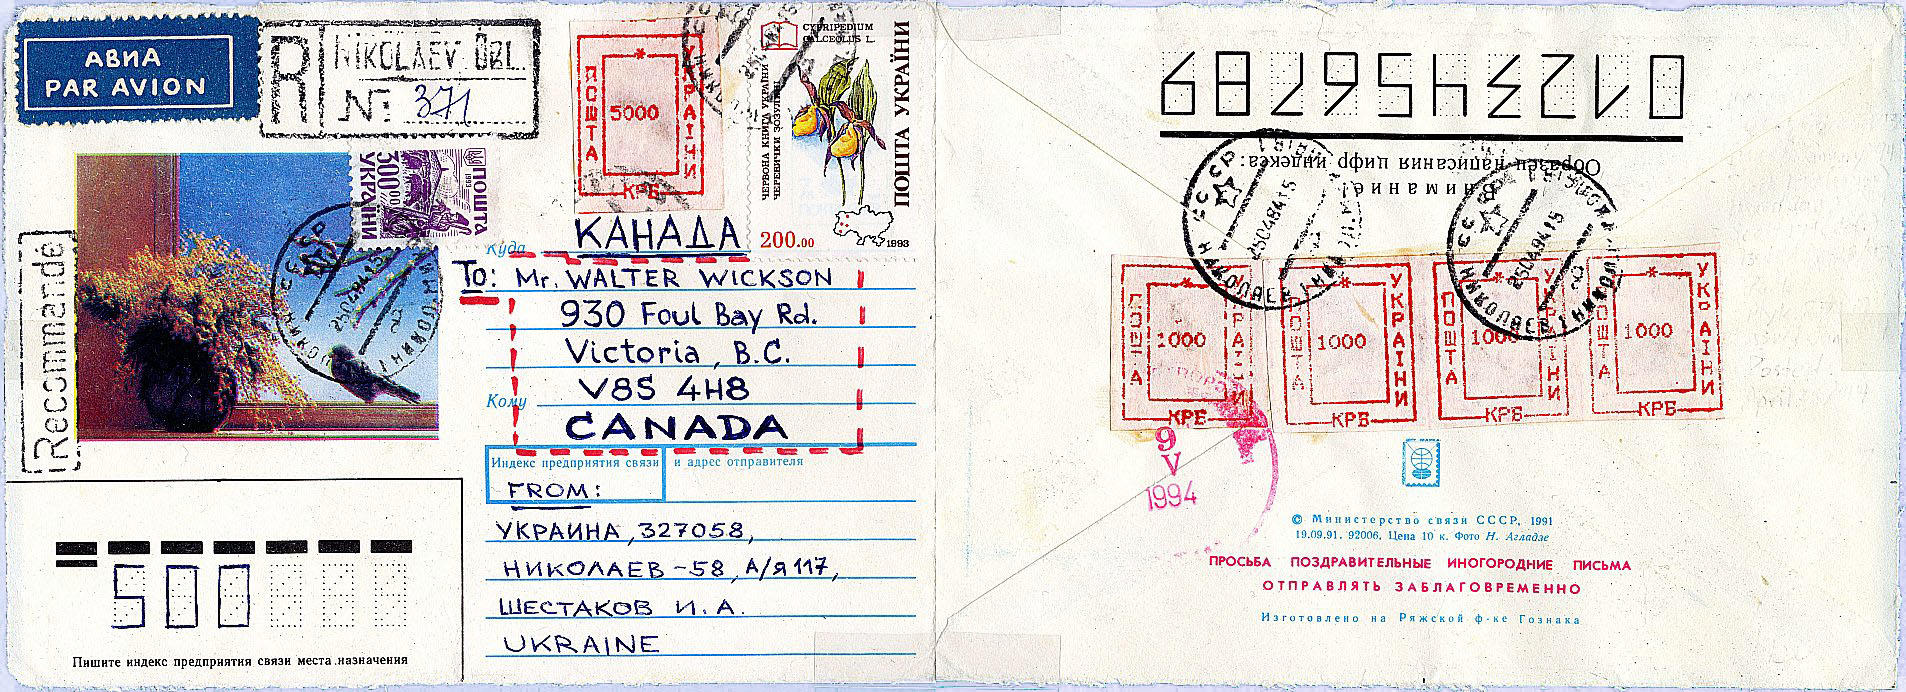 АВИА
PAR AVION
R
NIKOLAEV OBL.
№: 371
Recommandé
ПОШТА УКРАЇНИ
5000
КРБ
CYPRIPEDIUM
CALCEOLUS L.
ЧЕРВОНА КНИГА УКРАЇНИ
ЧЕРЕВИЧКИ ЗОЗУЛИНІ
ПОШТА УКРАЇНИ
200.00
1993
ПОШТА
УКРАЇНИ
300.00
1993
Куда КАНАДА
To: Mr. WALTER WICKSON
930 Foul Bay Rd.
Victoria, B.C.
Кому V8S 4H8
CANADA
Индекс предприятия связи и адрес отправителя
FROM:
УКРАИНА, 327058,
НИКОЛАЕВ-58, А/Я 117,
ШЕСТАКОВ И. А.
UKRAINE
500
Пишите индекс предприятия связи места назначения
0123456789
Образец написания цифр индекса:
Внимание!
НИКОЛАЕВ
СССР
ПОШТА УКРАЇНИ
1000
КРБ
ПОШТА УКРАЇНИ
1000
КРБ
ПОШТА УКРАЇНИ
1000
КРБ
ПОШТА УКРАЇНИ
1000
КРБ
9
V
1994
© Министерство связи СССР, 1991
19.09.91. 92006. Цена 10 к. Фото Н. Агладзе
ПРОСЬБА ПОЗДРАВИТЕЛЬНЫЕ ИНОГОРОДНИЕ ПИСЬМА
ОТПРАВЛЯТЬ ЗАБЛАГОВРЕМЕННО
Изготовлено на Ряжской ф-ке Гознака